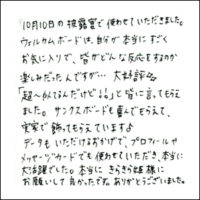 10月10日の披露宴で使わせていただきました。
ウェルカムボードは、自分が本当にすごく
お気に入りで、皆がどんな反応をするのか
楽しみだったんですが… 大好評♪
「超〜似てるんだけど!!」と皆に言ってもらえ
ました。サンクスボードも喜んでもらえて、
実家で飾ってもらえていますよ
データもいただけるおかげで、プロフィールや
メッセージカードでも使わせていただき、本当に
大活躍でした。本当にきらきら姫様に
お願いして良かったですね ありがとうございました。